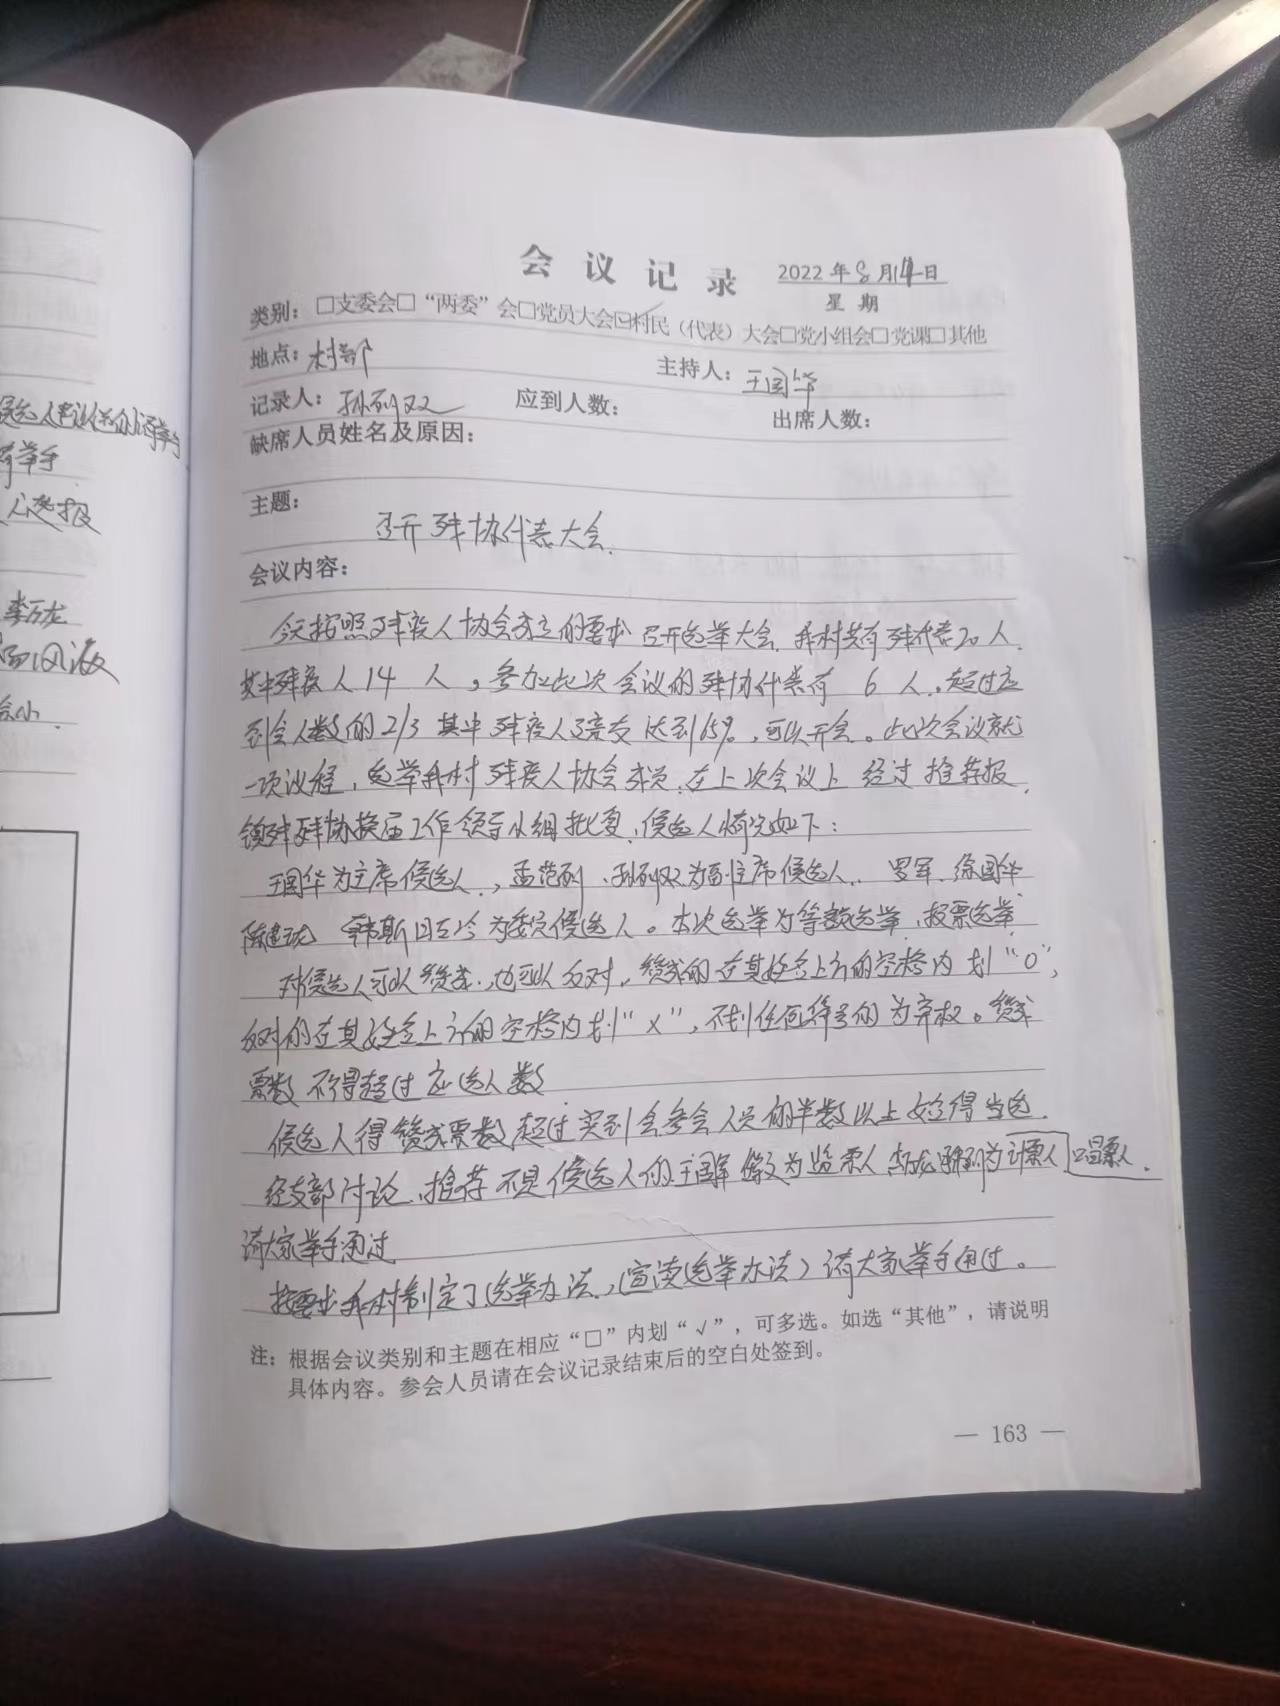 侯选人
举手
有举手
人选报
李万龙
会议记录
2022年8月14日
星期
类别：□支委会□“两委”会□党员大会☑村民（代表）大会□党小组会□党课□其他
地点：村部
主持人：王国华
记录人：孙列双
应到人数：
出席人数：
缺席人员姓名及原因：
主题：
召开残协代表大会.
会议内容：
今天按照残疾人协会成立的要求召开选举大会.我村共有残代表20人.
其中残疾人14人，参加此次会议的残协代表有 6人.超过应
到会人数的2/3其中残疾人及亲友达到65%，可以开会。此次会议就
一项议程，选举我村残疾人协会成员.在上次会议上经过推荐报
镇残联残协换届工作领导小组批复，侯选人情况如下：
王国华为主席侯选人，孟范利、孙列双为副主席侯选人.罗军.徐国华
陈建龙 韩斯日古冷为委员侯选人。本次选举为等额选举，投票选举
对侯选人可以赞成，也可以反对，赞成的在其姓名上方的空格内划“O”，
反对的在其姓名上方的空格内划“×”，不划任何符号的为弃权。赞成
票数不得超过应选人数
侯选人得赞成票数超过实到会参会人员的半数以上始得当选.
经支部讨论，推荐不是侯选人的王国军 为监票人 为计票人 唱票人.
请大家举手通过
按要求我村制定了选举办法，（宣读选举办法）请大家举手通过。
注：根据会议类别和主题在相应“□”内划“√”，可多选。如选“其他”，请说明
具体内容。参会人员请在会议记录结束后的空白处签到。
— 163 —